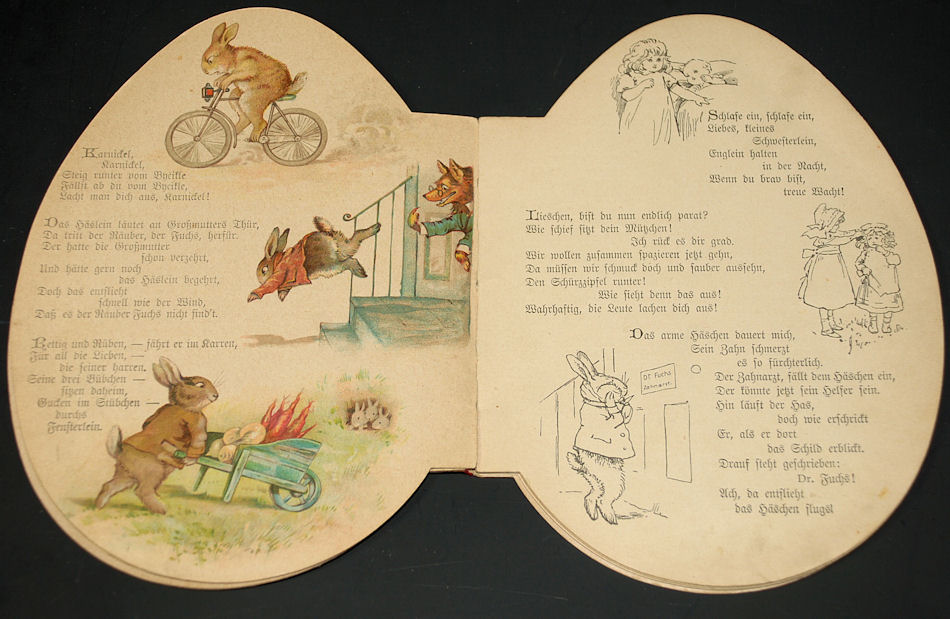 Karnickel,
Karnickel,
Steig runter vom Bycikle
Fällst ab du vom Bycikle,
Lacht man dich aus, Karnickel!
Das Häslein läutet an Großmutters Thür,
Da tritt der Räuber, der Fuchs, herfür.
Der hatte die Großmutter
schon verzehrt,
Und hätte gern noch
das Häslein begehrt,
Doch das entflieht
schnell wie der Wind,
Daß es der Räuber Fuchs nicht find't.
Rettig und Rüben, — fährt er im Karren,
Für all die Lieben, —
die seiner harren.
Seine drei Bübchen —
sitzen daheim,
Gucken im Stübchen —
durchs
Fensterlein.
Schlafe ein, schlafe ein,
Liebes, kleines
Schwesterlein,
Englein halten
in der Nacht,
Wenn du brav bist,
treue Wacht!
Lieschen, bist du nun endlich parat?
Wie schief sitzt dein Mützchen!
Ich rück es dir grad.
Wir wollen zusammen spazieren jetzt gehn,
Da müssen wir schmuck doch und sauber aussehn,
Den Schürzzipfel runter!
Wie sieht denn das aus!
Wahrhaftig, die Leute lachen dich aus!
Das arme Häschen dauert mich,
Sein Zahn schmerzt
es so fürchterlich.
Der Zahnarzt, fällt dem Häschen ein,
Der könnte jetzt sein Helfer sein.
Hin läuft der Has,
doch wie erschrickt
Er, als er dort
das Schild erblickt.
Drauf steht geschrieben:
Dr. Fuchs!
Ach, da entflieht
das Häschen flugs!
Dr Fuchs
Zahnarzt.